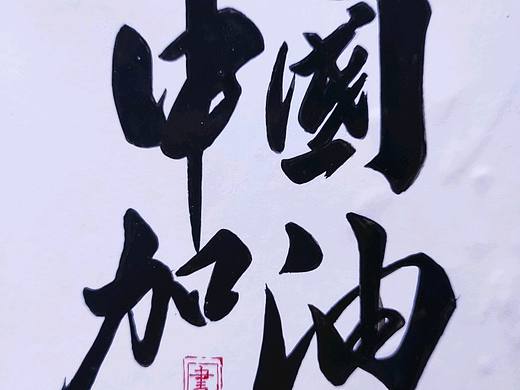 中國
加油
書